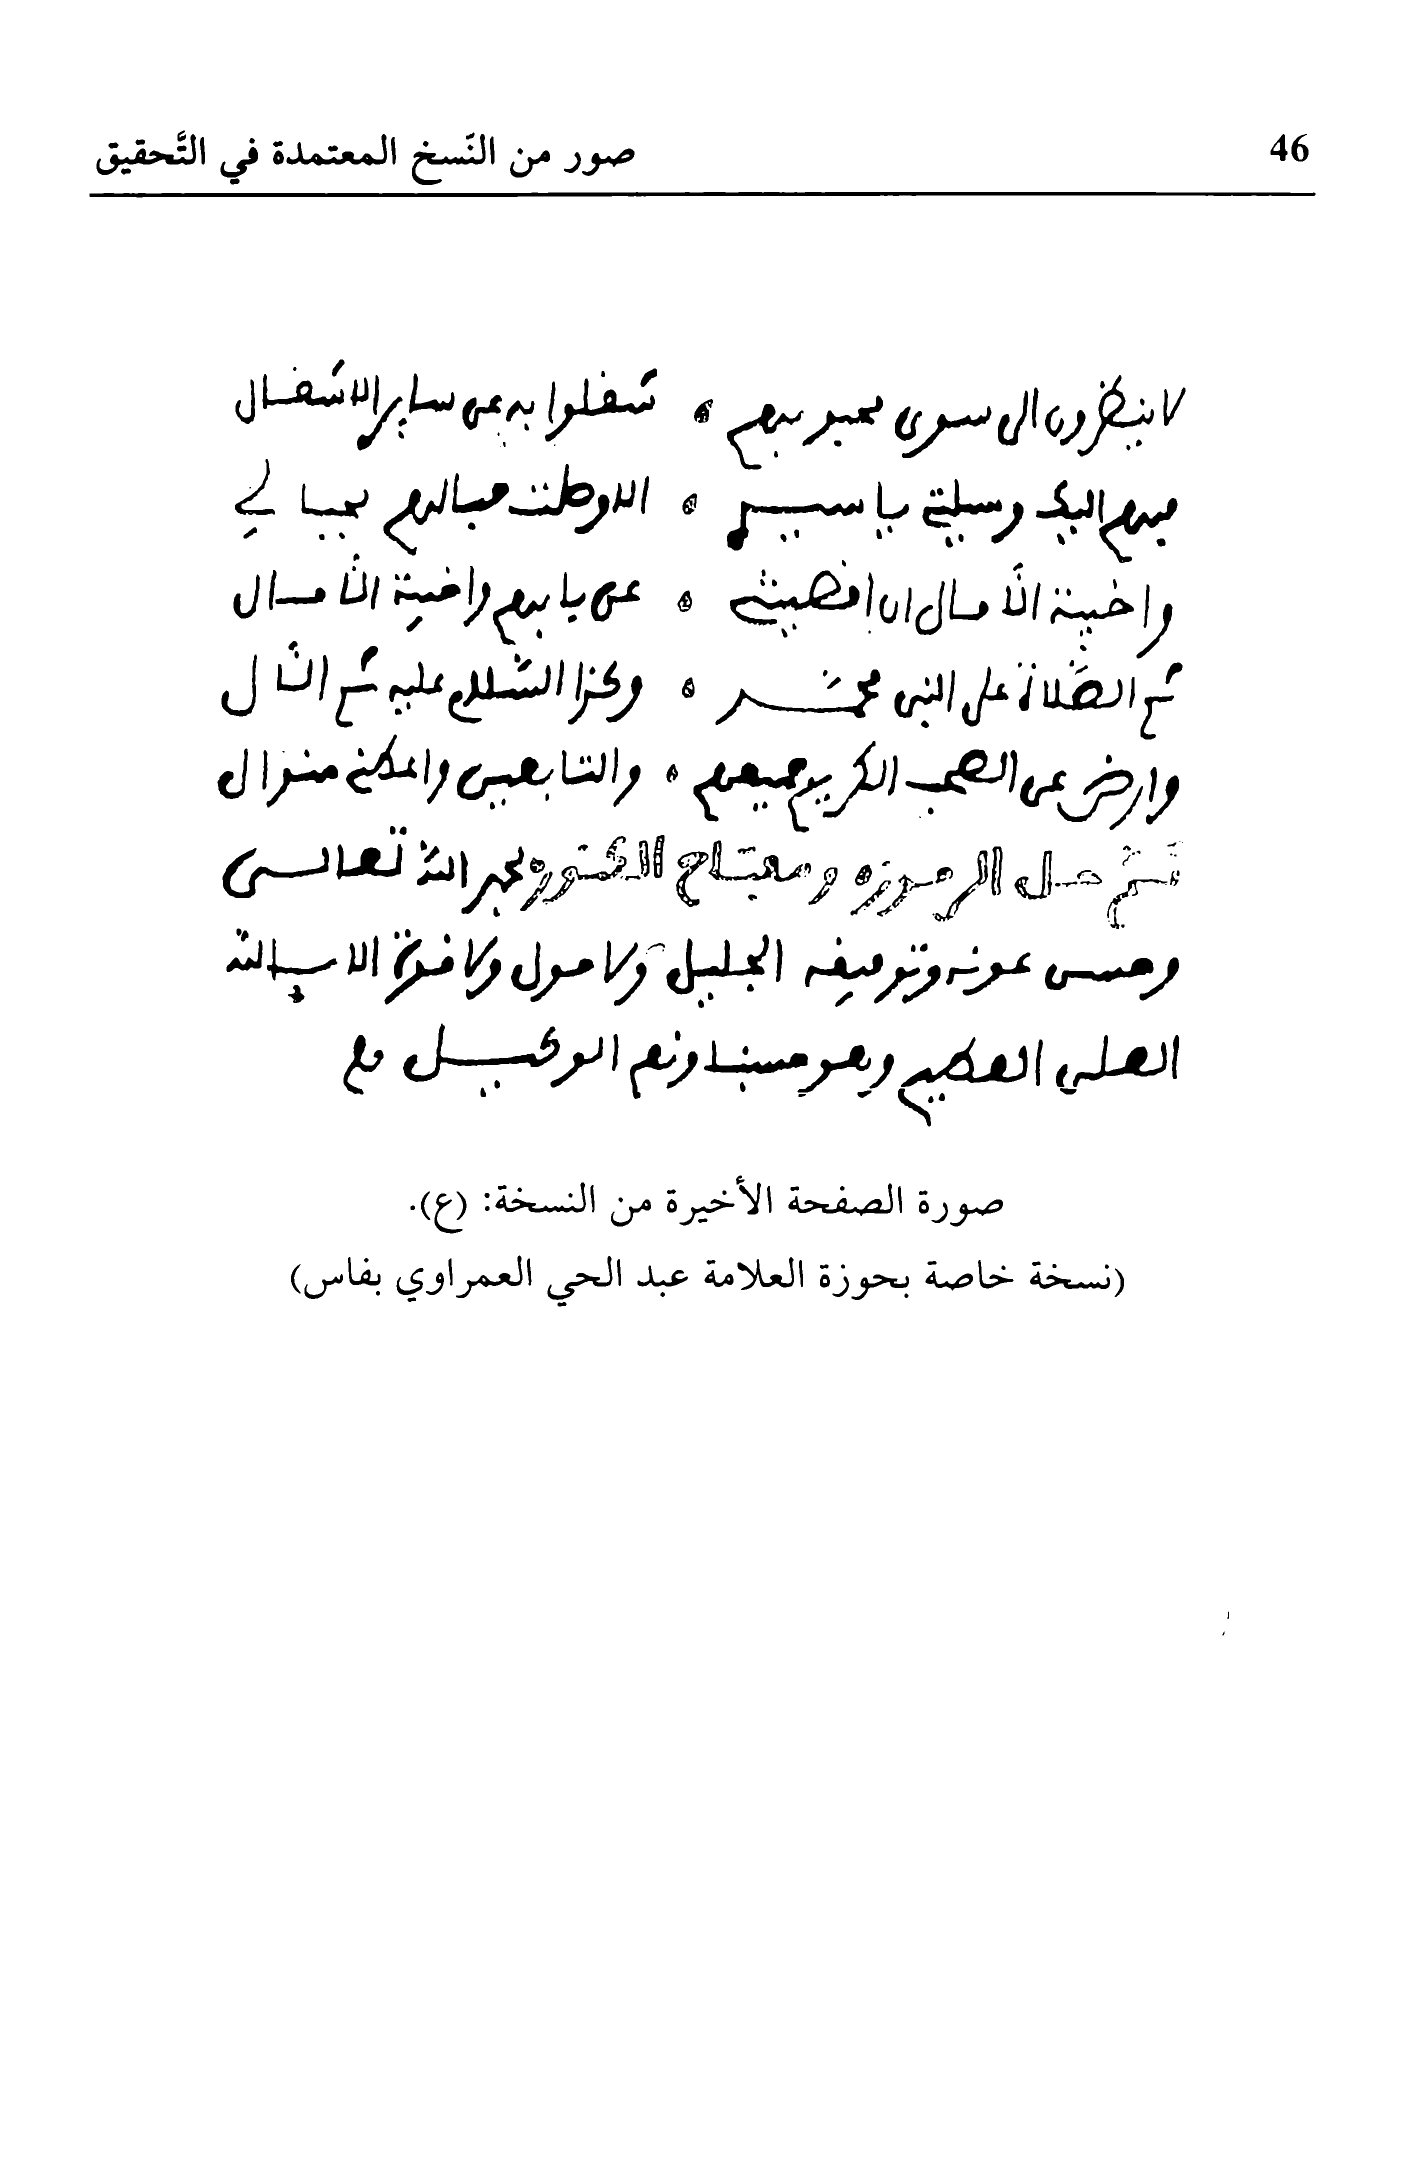 صور من النّسخ المعتمدة في التَّحقيق 46
لا ينظرون الى سوى محبوبهم ه شغلوا به عن ساير الاشغال
فبهم اليك وسيلتي يا سيدي ه الا وصلت حبالهم بحبالي
واخيبة الأمال ان اقصيتني ه عن بابهم واخيبة الأمال
ثم الصّلاة على النبي محمّد ه وكذا السّلام عليه ثم الال
وارض عن الصحب الكريم جميعهم ه والتابعين واعطني منوال
تم حل الرموزه ومفتاح الكنوزه بحمد الله تعالى
وحسن عونه وتوفيقه الجليل ولا حول ولا قوة الا بالله
العلي العظيم وهو حسبنا ونعم الوكيل
صورة الصفحة الأخيرة من النسخة: (ع).
(نسخة خاصة بحوزة العلامة عبد الحي العمراوي بفاس)